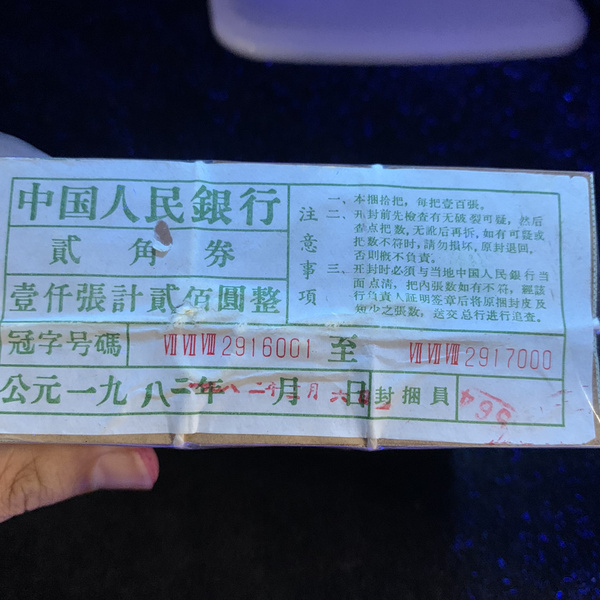 中国人民銀行
貳角券
壹仟張計貳佰圓整
注意事項
一、本捆拾把，每把壹百張。
二、开封前先檢查有无破裂可疑，然后
壺点把数，无訛后再拆，如有可疑或
把数不符时，請勿損坏，原封退回，
否則槪不負責。
三、开封时必須与当地中国人民銀行当
面点清，把内張数如有不符，經該
行負責人証明簽章后将原捆封皮及
短少之張数，送交总行进行追查。
冠字号碼 ⅦⅦⅧ2916001 至 ⅦⅦⅧ2917000
公元一九八二年 月 日 封捆員 564